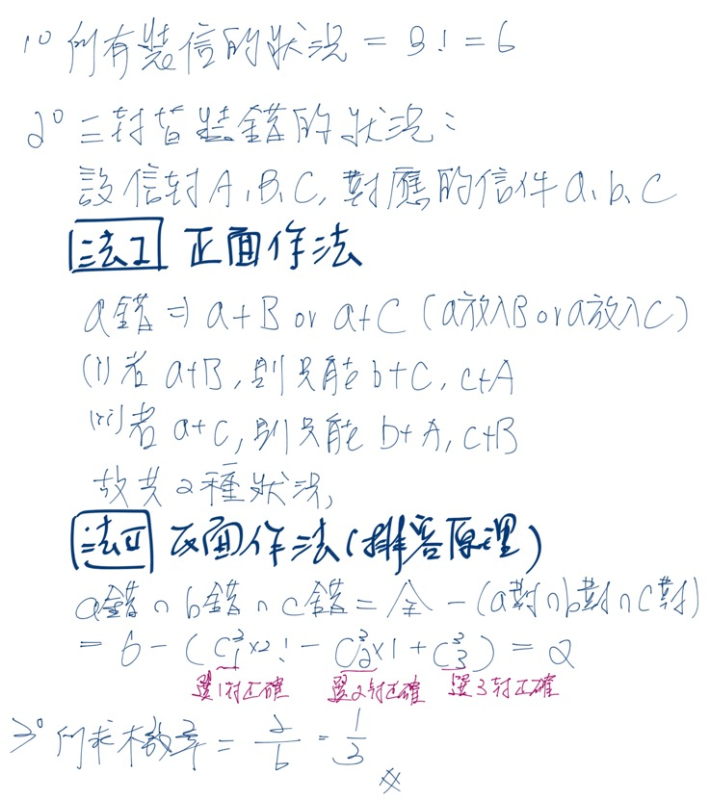 1° 所有裝信的狀況 = 3! = 6
2° 三封皆裝錯的狀況:
設信封A、B、C, 對應的信件a、b、c
法I 正面作法
a錯 ⇒ a+B or a+C (a放入B or a放入C)
(i) 若 a+B, 則只能 b+C, c+A
(ii) 若 a+C, 則只能 b+A, c+B
故共2種狀況,
法II 反面作法(排容原理)
a錯∩b錯∩c錯 = 全 - (a對∩b對∩c對)
= 6 - (C³₁×2! - C³₂×1 + C³₃) = 2
選1封正確 選2封正確 選3封正確
3° 所求機率 = 2/6 = 1/3